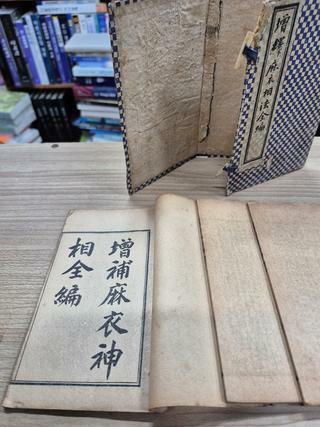 增釋麻衣相法全編
增補麻衣神
相全編